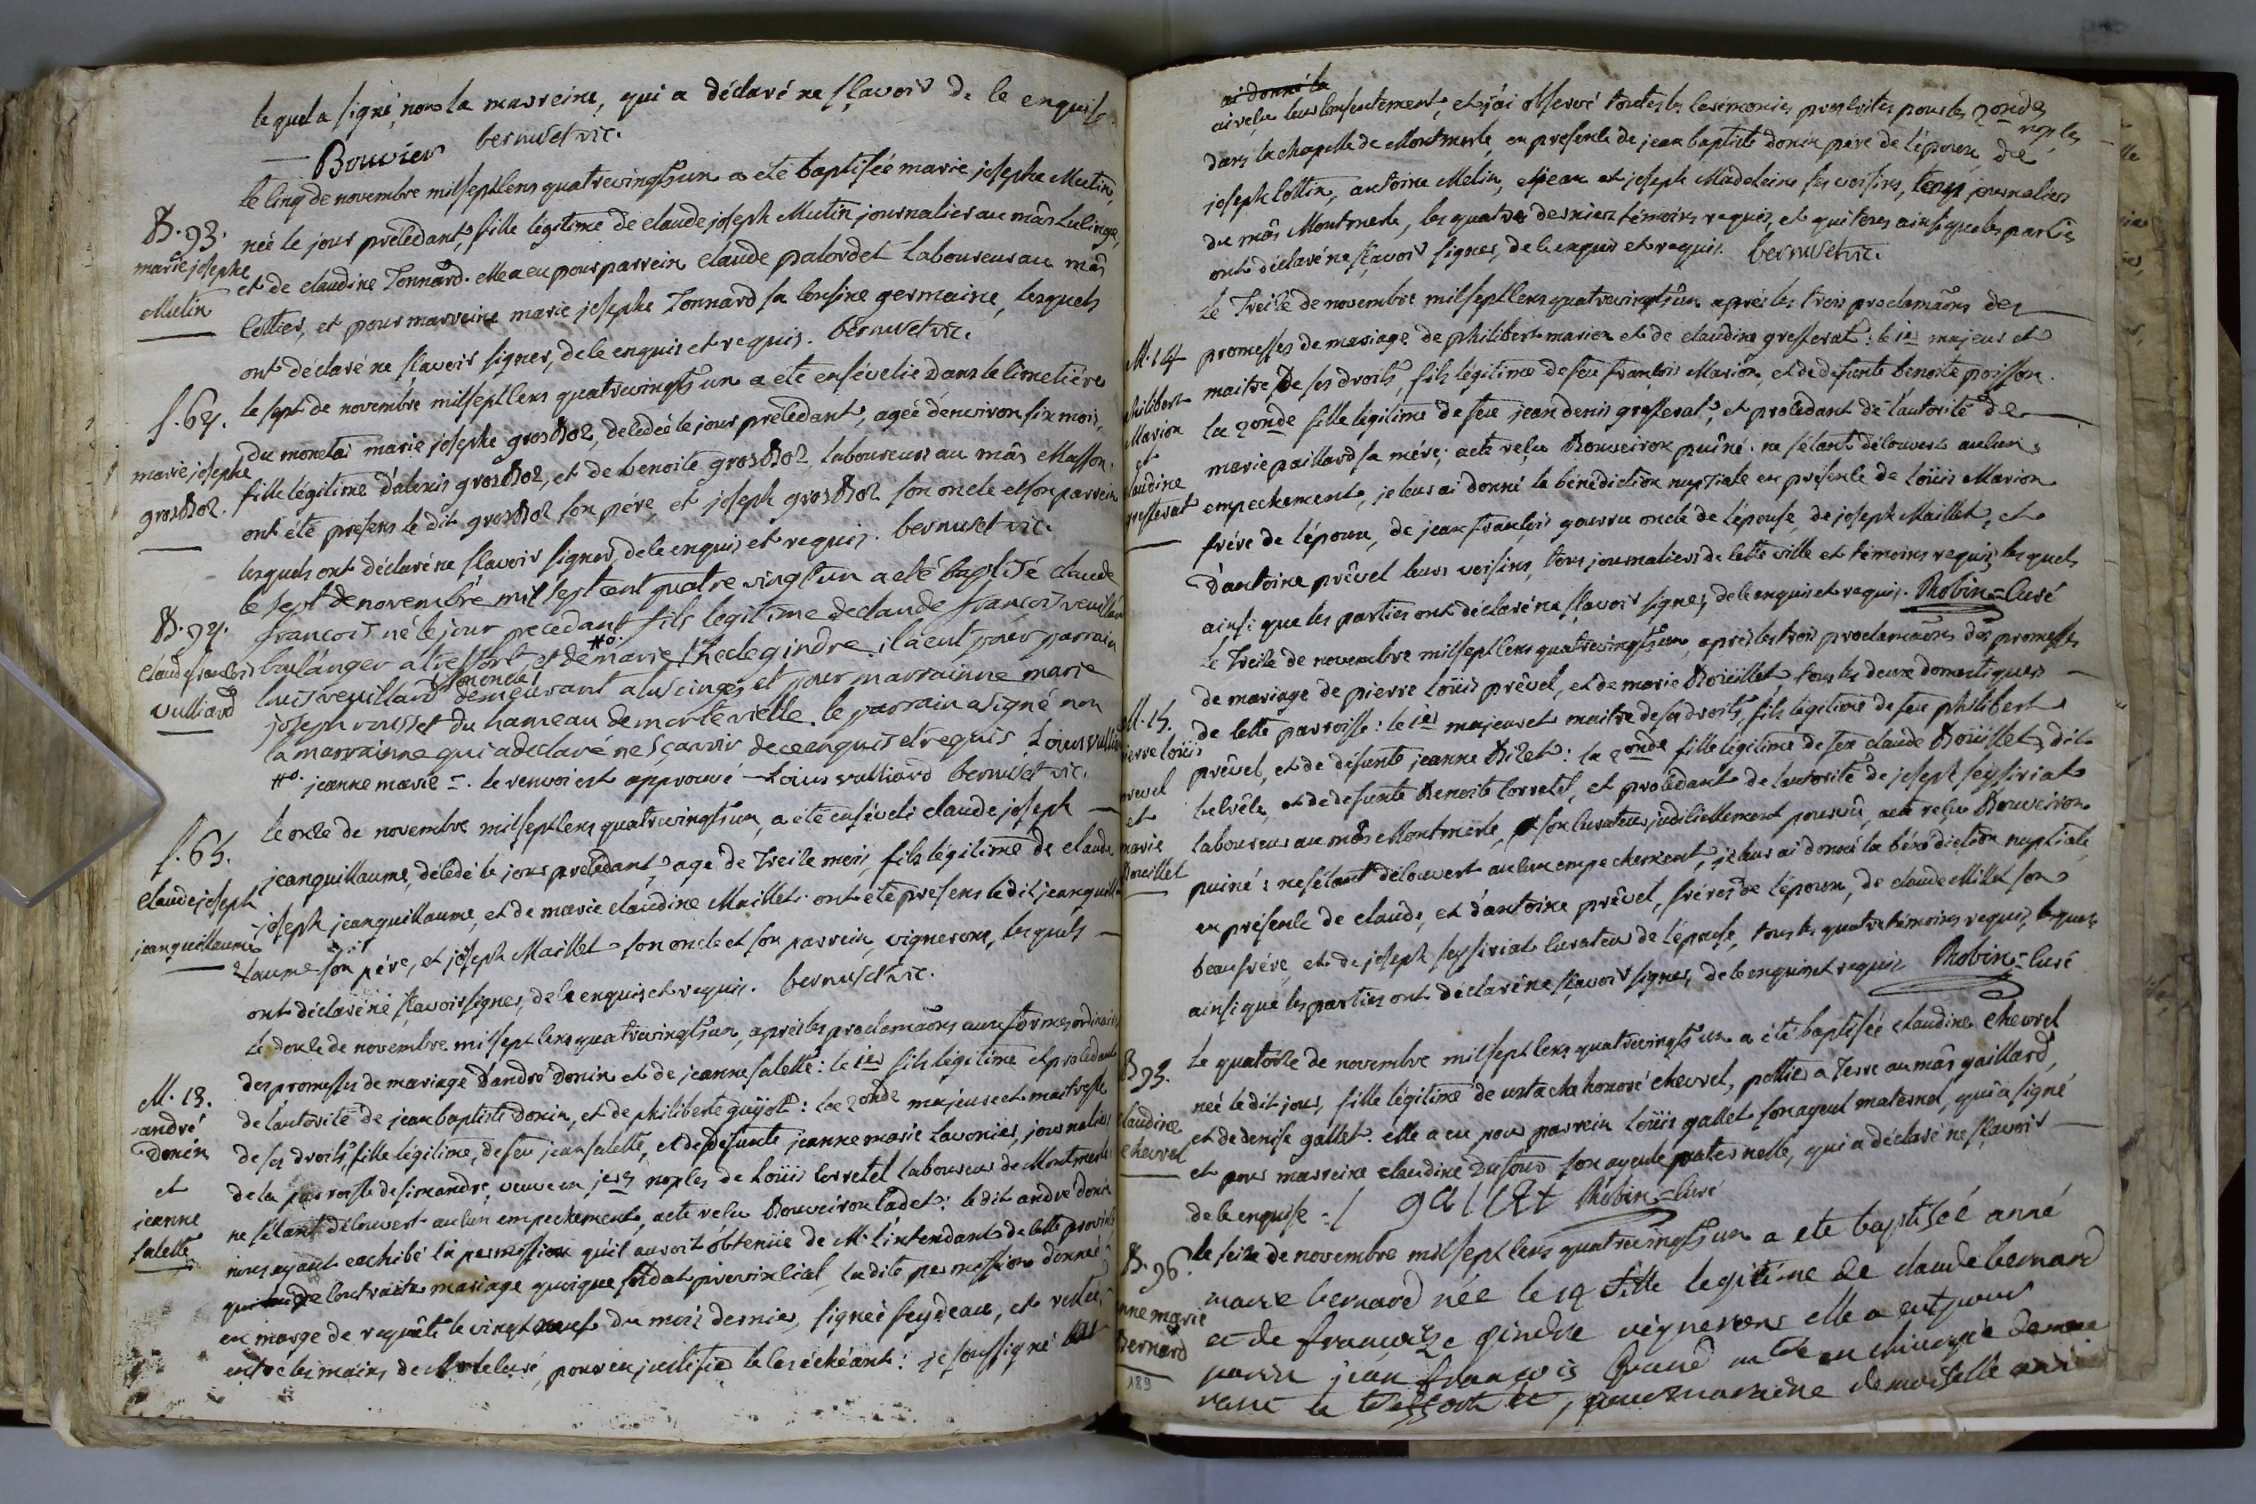 lequel a signé, non la marreine, qui a déclaré ne sçavoir de ce enquise.
Bouvier bernuset vic.
B. 93.
marie josephe
Mutin
le cinq de novembre mil sept cens quatrevingts un a été baptisée marie josephe Mutin,
née le jour précédant, fille légitime de claude joseph Mutin journalier au mâs Lucinge,
et de claudine Tonnard. elle a eu pour parrein claude palordet Laboureur au mâs
Cottier, et pour marreine marie josephe Tonnard sa cousine germaine, lesquels
ont déclaré ne sçavoir signer, de ce enquis et requis. bernuset vic.
s. 64.
marie josephe
grosBoz.
le sept de novembre mil sept cens quatrevingts un a été ensévelie dans le cimetière
du monetai marie josephe grosBoz, décédée le jour précédant, agée d'environ six mois,
fille légitime d'alexis grosBoz, et de benoite grosBoz Laboureurs au mâs Masson.
ont été présens le dit grosBoz son père, et joseph grosBoz son oncle et son parrein
lesquels ont déclaré ne sçavoir signer, de ce enquis et requis. bernuset vic.
B. 94.
Claude francois
vulliard
le sept de novembre mil sept cent quatre vingt un a été baptisé claude
francois né le jour precedant fils legitime de claude francois veuillard
boulanger a treffort et de #o. marie Thecle gindre. il a eut pour parrain
luis veuillard son oncle demeurant a luscinges et pour marrainne marie
joseph rousset du hameau de morte vielle. le parrain a signé non
la marrainne qui a declaré ne sçavoir de ce enquis et requis Louis vulliard
#o. jeanne marie =. le renvoi est approuvé Louis vulliard bernuset vic.
s. 65.
Claude joseph
jeanguillaume
le onze de novembre mil sept cens quatrevingts un, a été enséveli claude joseph
jeanguillaume, décédé le jour précédant, agé de treize mois, fils légitime de claude
joseph jeanguillaume, et de marie claudine Maillet. ont été présens le dit jeanguil=
=laume son père, et joseph Maillet son oncle et son parrein, vignerons, lesquels
ont déclaré ne sçavoir signer, de ce enquis et requis. bernuset vic.
M. 13.
andré
Donin
et
jeanne
salette
Le douze de novembre mil sept cens quatrevingts un, après les proclamaõns aux formes ordinaires
des promesses de mariage d'andré Donin et de jeanne salette: le 1er fils légitime et procédant
de l'autorité de jean baptiste donin, et de philiberte guijot: la 2onde majeure et maitresse
de ses droits, fille légitime, de feu jean salette, et de défunte jeanne marie Lavonier, journaliers
de la parroisse de simandre, veuve en 1eres noples de Loüis Corretel Laboureur de Montmerle:
ne s'étant découvert aucun empechement, acte reçu Bouveiron Cadet: le dit andré donin
nous ayant exchibé la permission qu'il auroit obtenüe de M. L'intendant de cette province
de contracter mariage quoique soldat provincial, la dite permission donneé
en marge de requête le vingt neuf du mois dernier, signeé feydeau, et restée
entre les mains de Mr le curé, pour en justifier le cas échéant: je soussigné
ai donné la
ai reçu leur consentement, et j'ai observé toutes les cérémonies prescrites pour les 2ondes
nopces
dans la chapelle de Montmerle, en présence de jean baptiste donin père de l'époux, de
joseph Cottin, antoine Melin, et jean et joseph Madeleine ses voisins, tous journaliers
du mâs Montmerle, les quatre derniers témoins requis, et qui tous ainsi que les parties
ont déclaré ne sçavoir signer, de ce enquis et requis. bernuset vic.
M. 14
philibert
Marion
et
claudine
gresserat
Le Treize de novembre mil sept cens quatrevingts un après les trois proclamaõns des
promesses de mariage de philibert marion et de claudine gresserat: le 1er majeur et
maitre de ses droits, fils légitime de feu françois Marion, et de défunte benoite poisson.
la 2onde fille légitime de feu jean denis gresserat, et procédant de l'autorité de
marie paillard sa mère; acte reçu Bouveiron puîné: ne s'étant découvert aucun
empechement, je leur ai donné la bénédiction nuptiale en présence de Loüis Marion
frère de l'époux, de jean françois gourru oncle de l'épouse, de joseph Maillet, et
d'antoine prêvel leurs voisins, tous journaliers de cette ville et témoins requis, lesquels
ainsi que les parties ont déclaré ne sçavoir signer, de ce enquis et requis. Robin=Curé
M. 15.
pierre loüis
prevel
et
marie
Bouillet
Le Treize de novembre mil sept cens quatrevingts un, après les trois proclamaõns des promesses
de mariage de pierre Loüis prêvel, et de marie Boüillet, tous les deux domestiques
de cette parroisse: le 1er majeur et maitre de ses droits, fils légitime de feu philibert
prêvel, et de défunte jeanne Bizet: la 2onde fille légitime de feu claude Boüillet, dit
, et de défunte Benoite Corretel, et procédant de l'autorité de joseph seyssiriat
laboureur au mâs Montmerle, son curateur judiciellement pourvû, acte reçu Bouveiron
puiné: ne s'étant découvert aucun empechement, je leur ai donné la bénédiction nuptiale
en présence de claude, et d'antoine prêvel, frères de l'époux, de claude Millet son
beaufrère, et de joseph seyssiriat curateur de l'épouse, tous les quatre témoins requis, lesquels
ainsi que les parties ont déclaré ne sçavoir signer, de ce enquis et requis Robin=Curé
B 95.
Claudine
Chevrel
Le quatorze de novembre mil sept cens quatrevingts un a été baptisée claudine Chevrel
neé le dit jour, fille légitime de ustache honoré chevrel, pottier a Terre au mâs gaillard,
et de denise gallet. elle a eu pour parrein Loüis gallet son ayeul maternel, qui a signé
et pour marreine claudine Dufour son ayeule paternelle, qui a déclaré ne sçavoir
de ce enquise =/ gallet Robin=Curé
B. 96.
anne marie
Bernard
le seize de novembre mil sept cens quatrevingts un a été baptiseé anne
marie bernard née le 14 fille legitime de claude bernard
et de francoise gindre vignerons elle a eut pour
parin jean francois en chirurgie
a treffort et, pour maraine demoiselle
189